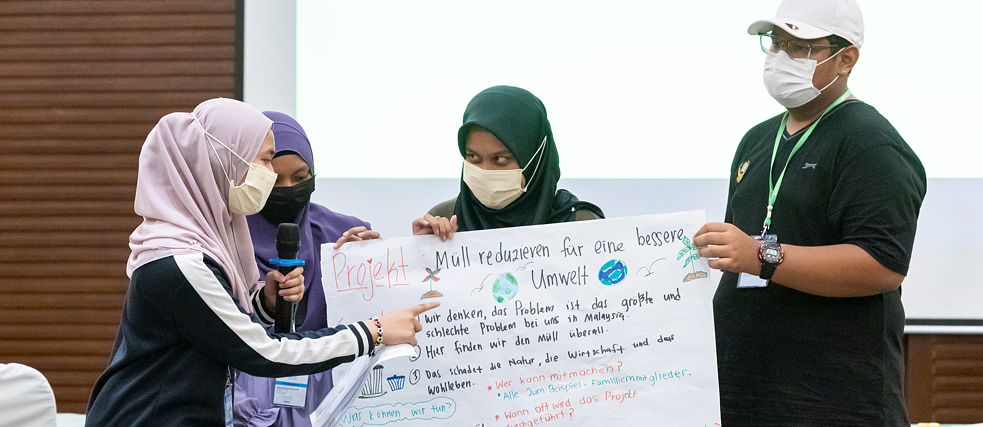 Projekt: Müll reduzieren für eine bessere
Umwelt
Wir denken, das Problem ist das größte und
schlechte Problem bei uns in Malaysia.
② Hier finden wir den Müll überall.
③ Das schadet die Natur, die Wirtschaft und das
wohlleben.
* Wer kann mitmachen?
• Alle. Zum Beispiel - Familiemitglieder.
Was können wir tun?
* Wann oft wird das Projekt
durchgeführt?